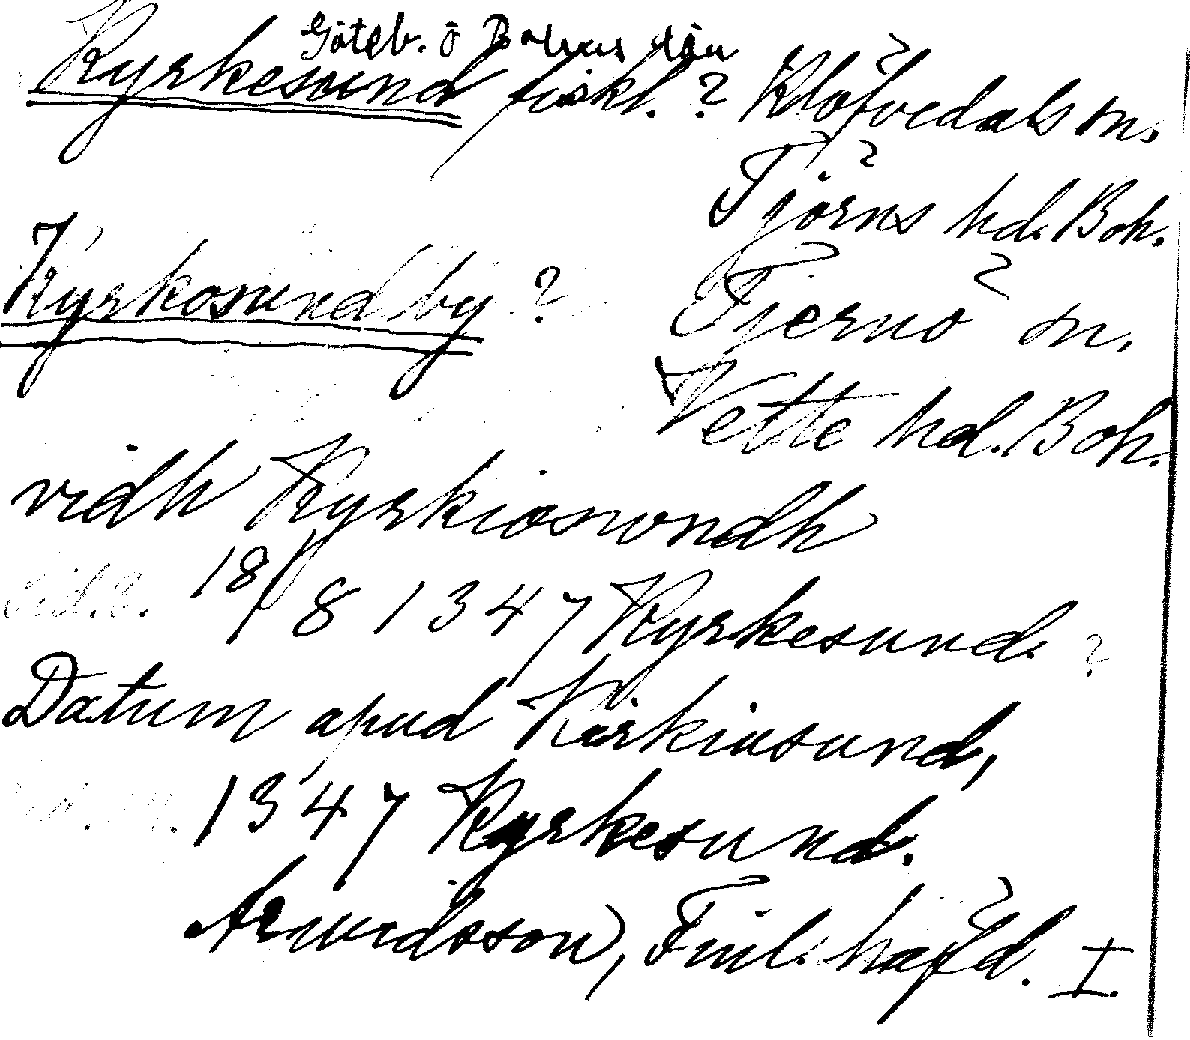 Göteb. o Bohus län
Kyrkesund fiskl. ? Klöfvedals sn.
Tjörns hd. Boh.
Kyrkosund by ? Tjernö sn.
Vette hd. Boh.
vidh Kyrkiosundh
18/8 1347 Kyrkesund. ?
Datum apud Kirkiusund,
1347 Kyrkesund.
Arwidsson, Finl. häfd. I.